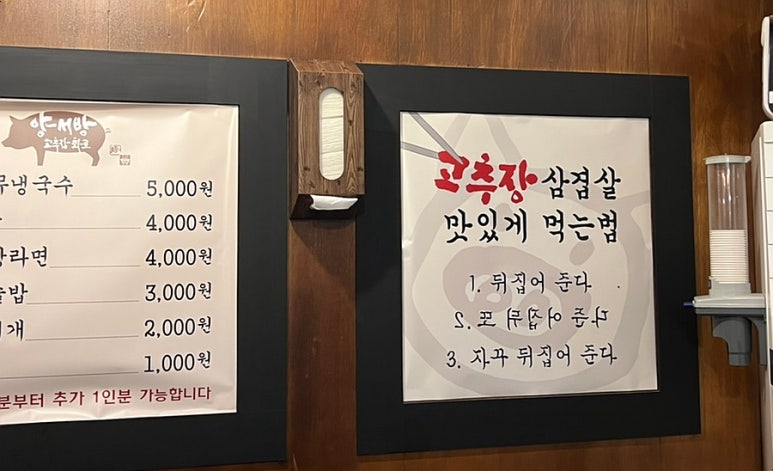 양서방
냉국수 5,000원
4,000원
라면 4,000원
밥 3,000원
개 2,000원
1,000원
분부터 추가 1인분 가능합니다
고추장 삼겹살
맛있게 먹는법
1. 뒤집어 준다
2. 또 뒤집어 준다
3. 자꾸 뒤집어 준다